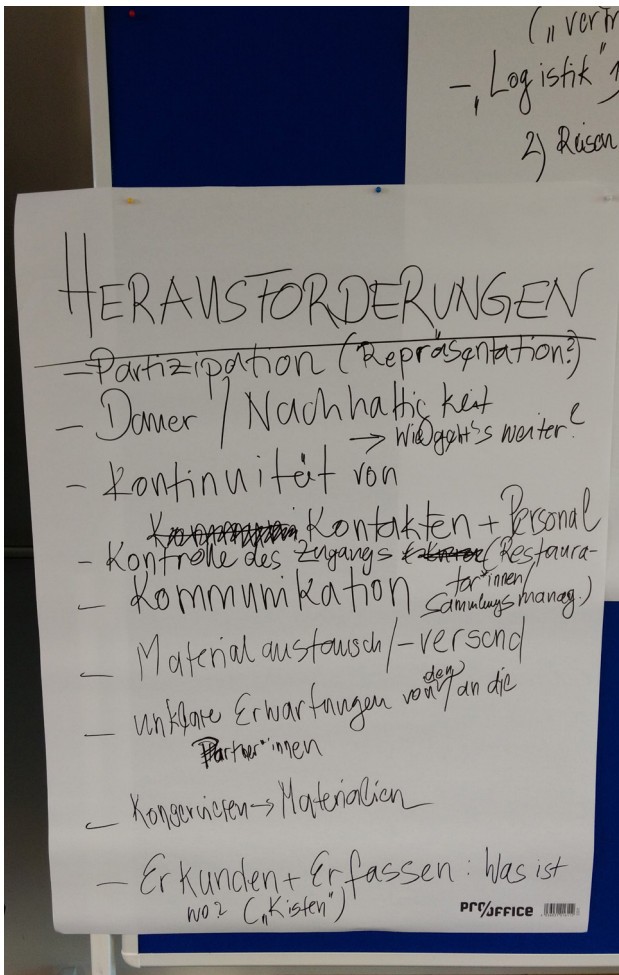 ("vertr
- "Logistik" 1)
2) Reisen
HERAUSFORDERUNGEN
- Partizipation (Repräsentation?)
- Dauer / Nachhaltigkeit
→ Wie geht's weiter?
- Kontinuität von
Kontakten + Personal
- Kontrolle des Zugangs (Restaura-
tor*innen/
- Kommunikation Sammlungsmanag.)
- Materialaustausch/-versand
- unklare Erwartungen von den/an die
Partner*innen
- Konservieren → Materialien
- Erkunden + Erfassen: Was ist
wo? ("Kisten")
PRO/OFFICE